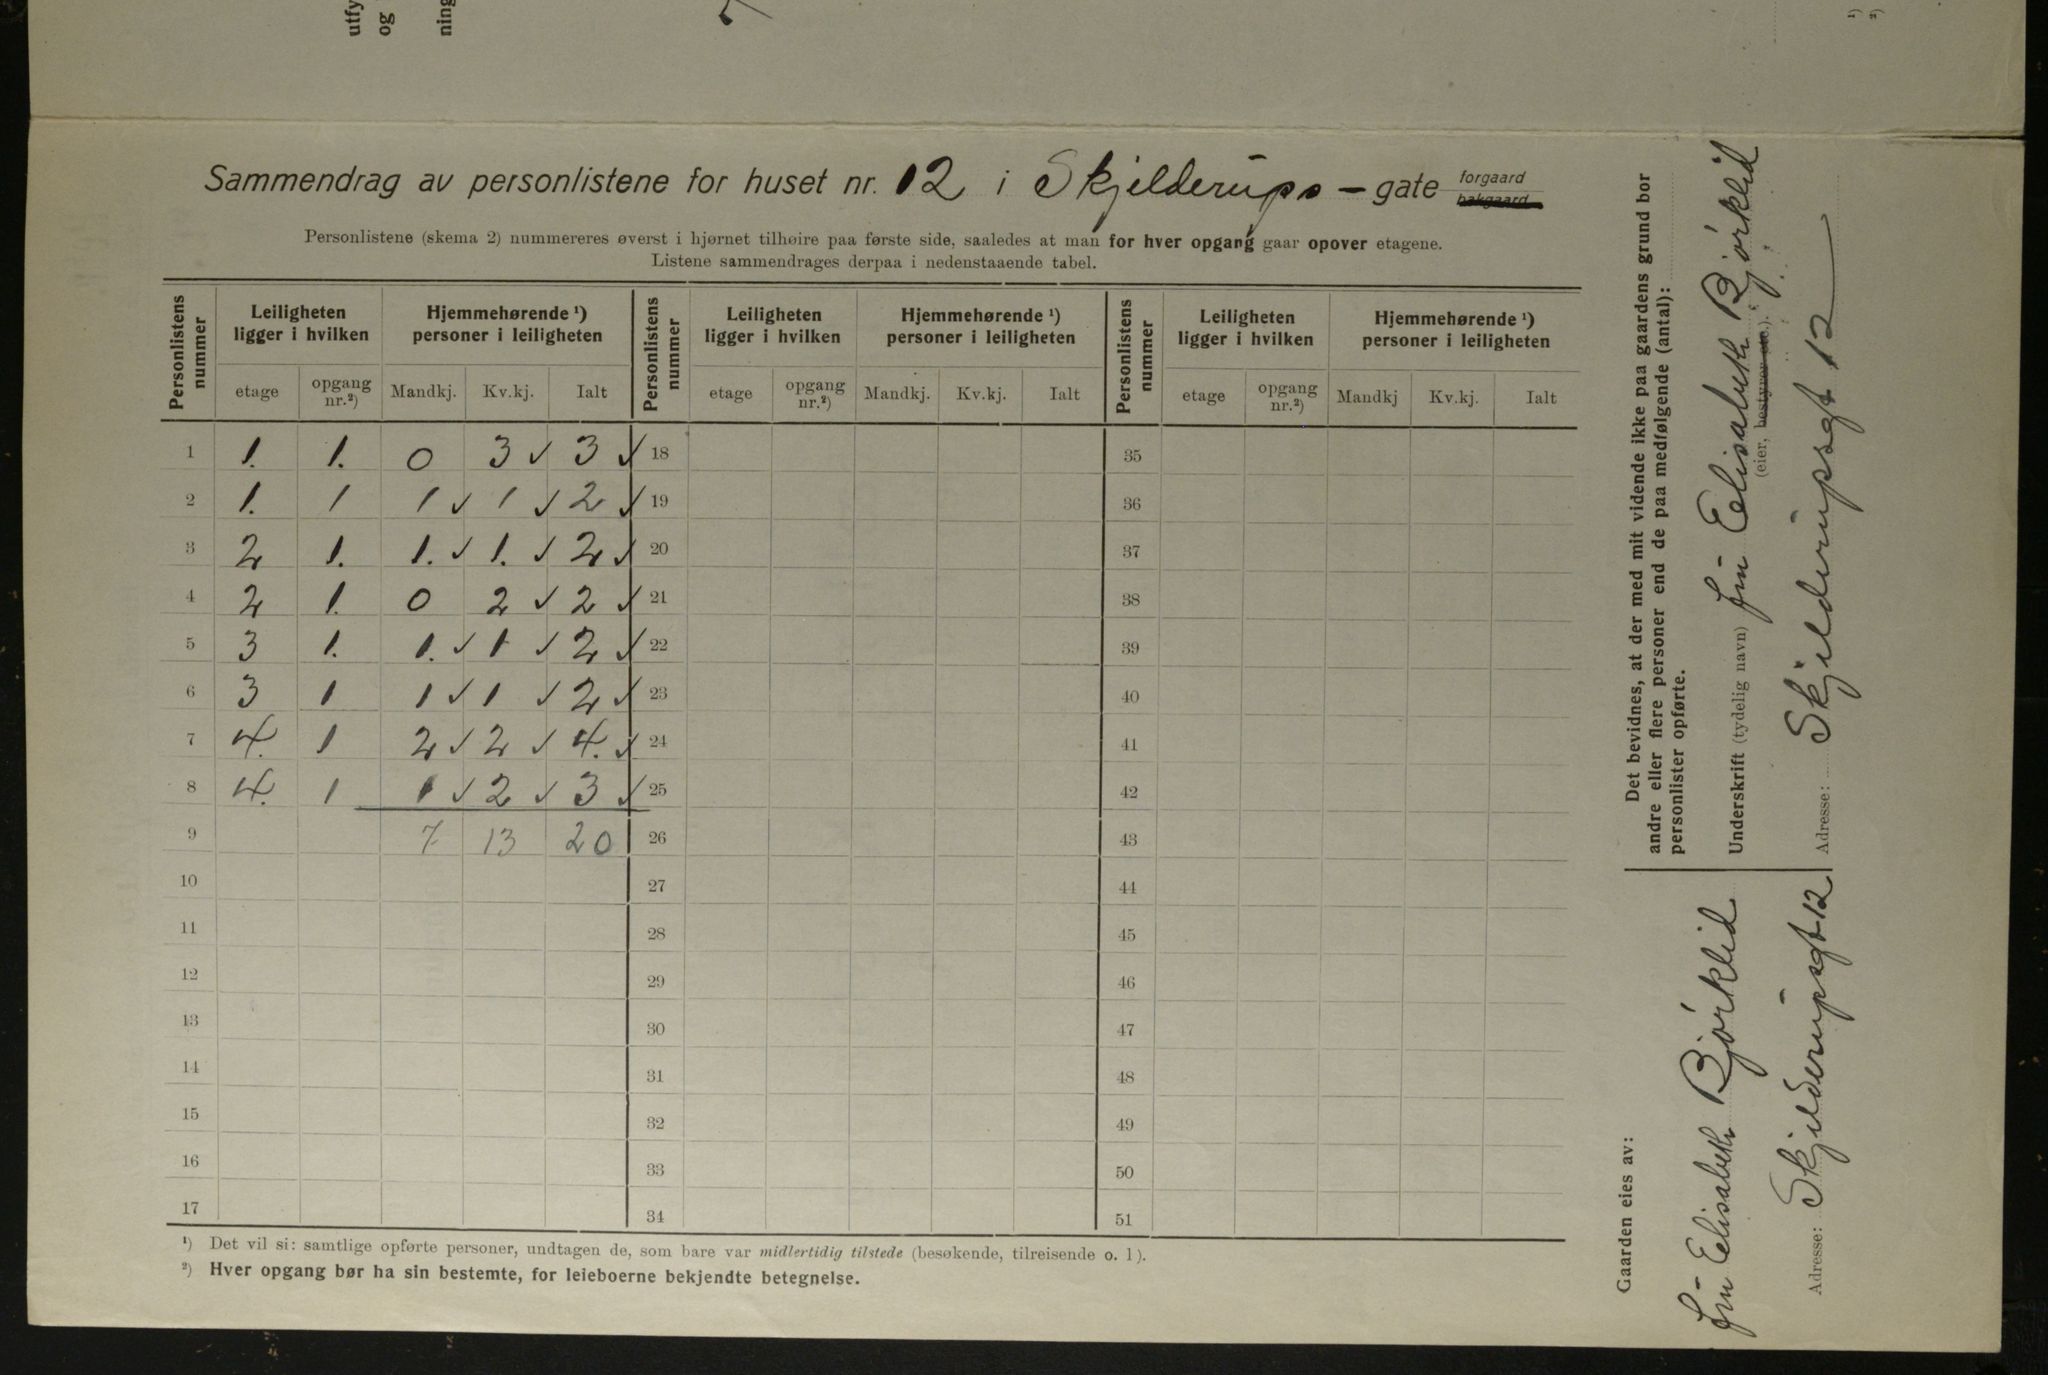 utfy
og
ning
Sammendrag av personlistene for huset nr. 12 i Skjelderups - gate forgaard bakgaard
Personlistene (skema 2) nummereres øverst i hjørnet tilhøire paa første side, saaledes at man for hver opgang gaar opover etagene.
Listene sammendrages derpaa i nedenstaaende tabel.
Personlistens nummer | Leiligheten ligger i hvilken | Hjemmehørende ¹) personer i leiligheten | Personlistens nummer | Leiligheten ligger i hvilken | Hjemmehørende ¹) personer i leiligheten | Personlistens nummer | Leiligheten ligger i hvilken | Hjemmehørende ¹) personer i leiligheten
etage | opgang nr.²) | Mandkj. | Kv.kj. | Ialt | etage | opgang nr.²) | Mandkj. | Kv.kj. | Ialt | etage | opgang nr.²) | Mandkj | Kv.kj. | Ialt
1 | 1. | 1. | 0 | 3 ✓ | 3 ✓ | 18 | 35
2 | 1. | 1 | 1 ✓ | 1 ✓ | 2 ✓ | 19 | 36
3 | 2 | 1. | 1. ✓ | 1. ✓ | 2 ✓ | 20 | 37
4 | 2 | 1. | 0 | 2 ✓ | 2 ✓ | 21 | 38
5 | 3 | 1. | 1. ✓ | 1 ✓ | 2 ✓ | 22 | 39
6 | 3 | 1 | 1 ✓ | 1 ✓ | 2 ✓ | 23 | 40
7 | 4. | 1 | 2 ✓ | 2 ✓ | 4. ✓ | 24 | 41
8 | 4. | 1 | 1 ✓ | 2 ✓ | 3 ✓ | 25 | 42
9 | 7 | 13 | 20 | 26 | 43
10 | 27 | 44
11 | 28 | 45
12 | 29 | 46
13 | 30 | 47
14 | 31 | 48
15 | 32 | 49
16 | 33 | 50
17 | 34 | 51
¹) Det vil si: samtlige opførte personer, undtagen de, som bare var midlertidig tilstede (besøkende, tilreisende o. l).
²) Hver opgang bør ha sin bestemte, for leieboerne bekjendte betegnelse.
Det bevidnes, at der med mit vidende ikke paa gaardens grund bor
andre eller flere personer end de paa medfølgende (antal):
personlister opførte.
Underskrift (tydelig navn) fru Elisabeth Bjørklid
(eier, bestyrer etc.).
Adresse: Skjelderupsgt 12
Gaarden eies av:
fru Elisabeth Bjørklid
Adresse: Skjelderupsgt 12
¹)
²)